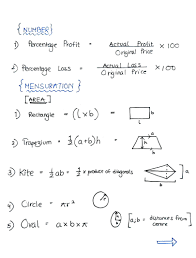 {NUMBER}
1) Percentage Profit = Actual Profit / Orginal Price × 100
2) Percentage Loss = Actual Loss / Orginal Price × 100
{MENSURATION}
[AREA]
1) Rectangle = (l × b) l b
2) Trapezium = ½(a+b)h = a h b
3) Kite = ½ab = ½ × product of diagonals
4) Circle = πr² r
5) Oval = a × b × π a b a,b = distances from centre